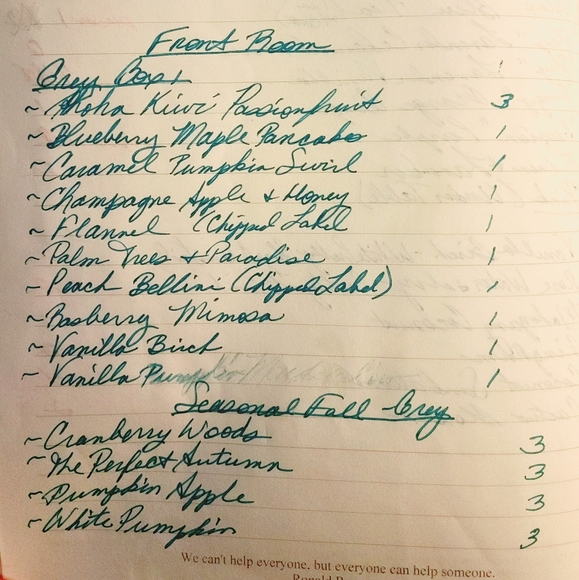 Front Room
Grey Box 1
~ Aloha Kiwi Passionfruit 3
~ Blueberry Maple Pancakes 1
~ Caramel Pumpkin Swirl 1
~ Champagne Apple & Honey 1
~ Flannel (Chipped Label 1
~ Palm Trees & Paradise 1
~ Peach Bellini (Chipped Label) 1
~ Rasberry Mimosa 1
~ Vanilla Birch 1
~ Vanilla Pumpkin 1
Seasonal Fall - Grey
~ Cranberry Woods 3
~ The Perfect Autumn 3
~ Pumpkin Apple 3
~ White Pumpkin 3
We can't help everyone, but everyone can help someone.
Ronald